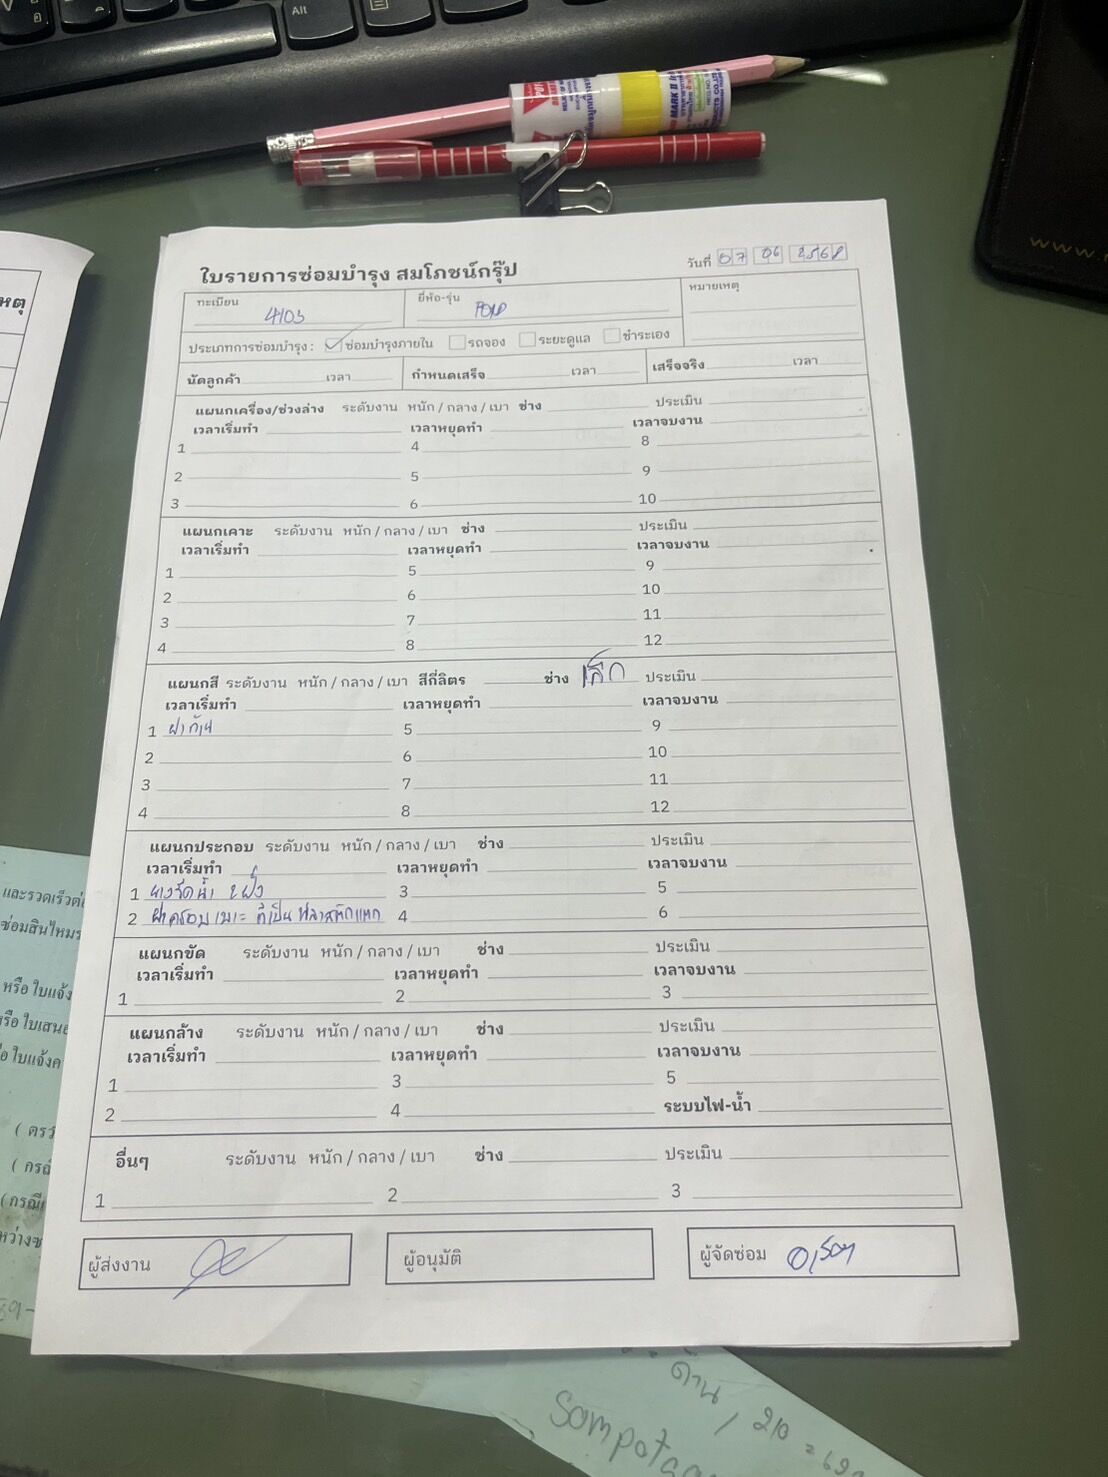 ใบรายการซ่อมบำรุง สมโภชน์กรุ๊ป
วันที่ 07 06 2568
ทะเบียน 4103
ยี่ห้อ-รุ่น
หมายเหตุ
ประเภทการซ่อมบำรุง : ซ่อมบำรุงภายใน รถจอง ระยะดูแล ชำระเอง
นัดลูกค้า เวลา กำหนดเสร็จ เวลา เสร็จจริง เวลา
แผนกเครื่อง/ช่วงล่าง ระดับงาน หนัก / กลาง / เบา ช่าง ประเมิน
เวลาเริ่มทำ เวลาหยุดทำ เวลาจบงาน
1 4 8
2 5 9
3 6 10
แผนกเคาะ ระดับงาน หนัก / กลาง / เบา ช่าง ประเมิน
เวลาเริ่มทำ เวลาหยุดทำ เวลาจบงาน
1 5 9
2 6 10
3 7 11
4 8 12
แผนกสี ระดับงาน หนัก / กลาง / เบา สีกี่ลิตร ช่าง เล็ก ประเมิน
เวลาเริ่มทำ เวลาหยุดทำ เวลาจบงาน
1 ฝาท้าย 5 9
2 6 10
3 7 11
4 8 12
แผนกประกอบ ระดับงาน หนัก / กลาง / เบา ช่าง ประเมิน
เวลาเริ่มทำ เวลาหยุดทำ เวลาจบงาน
1 ยางรีดน้ำ 2 ฝั่ง 3 5
2 ฝาครอบเบาะ ที่เป็นพลาสติกแตก 4 6
แผนกขัด ระดับงาน หนัก / กลาง / เบา ช่าง ประเมิน
เวลาเริ่มทำ เวลาหยุดทำ เวลาจบงาน
1 2 3
แผนกล้าง ระดับงาน หนัก / กลาง / เบา ช่าง ประเมิน
เวลาเริ่มทำ เวลาหยุดทำ เวลาจบงาน
1 3 5
2 4 ระบบไฟ-น้ำ
อื่นๆ ระดับงาน หนัก / กลาง / เบา ช่าง ประเมิน
1 2 3
ผู้ส่งงาน
ผู้อนุมัติ
ผู้จัดซ่อม
Alt
หรือ ใบแจ้ง